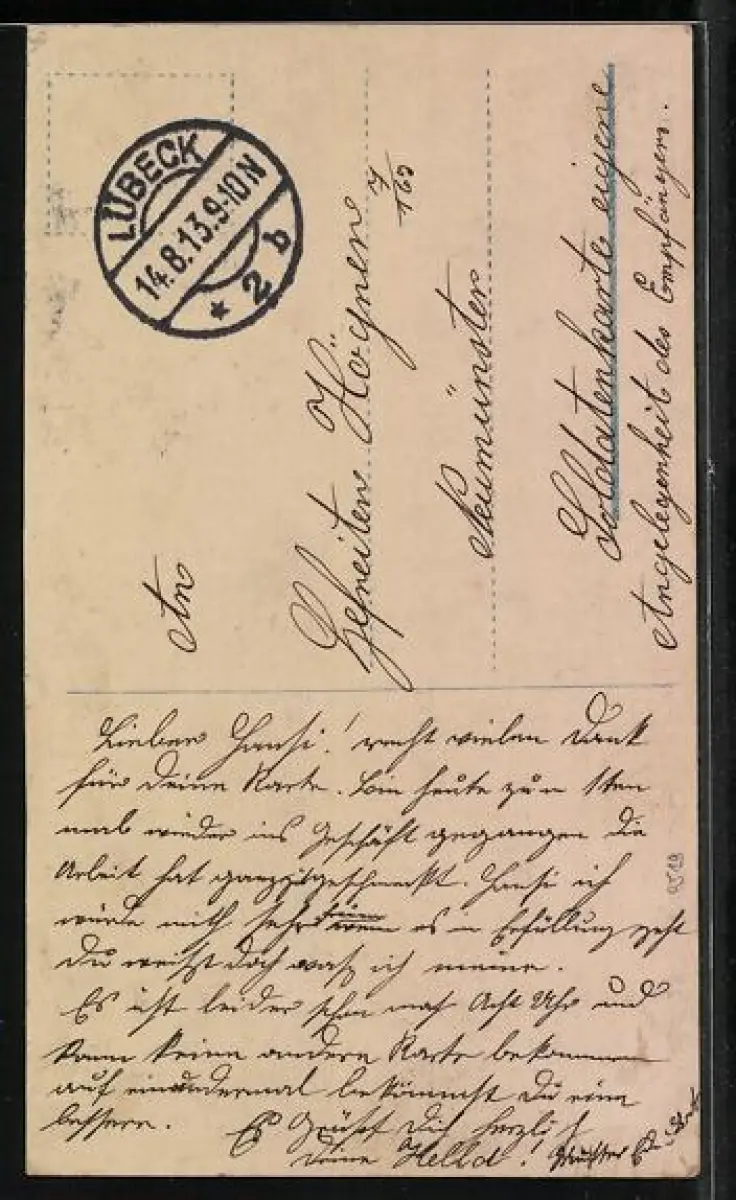 LÜBECK
14.8.13.9-10N
* 2 b
An
Gefreiten Högner 7/163
Neumünster
Soldatenkarte eigene
Angelegenheit des Empfängers.
Lieber Hansi! recht vielen Dank
für Deine Karte. Bin heute zum 1ten
mal wieder ins Geschäft gegangen die
Arbeit hat ganz gut geschmeckt. Hansi ich
würde mich sehr freuen wenn es in Erfüllung geht
Du weißt doch was ich meine.
Es ist leider schon nach Acht Uhr und
kann keine andere Karte bekommen
auf einandermal bekömmst Du eine
bessere. Es Grüßt Dich herzlich
Deine Hella!